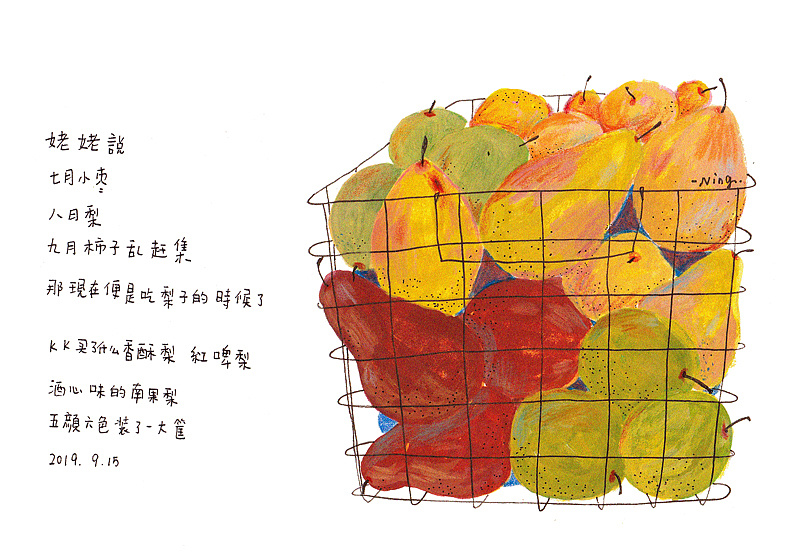 姥姥說
七月小枣
八月梨
九月柿子乱赶集
那現在便是吃梨子的時候了
KK买了什么香酥梨 紅啤梨
酒心味的南果梨
五顔六色装了一大筐
2019. 9.15
-Ning.